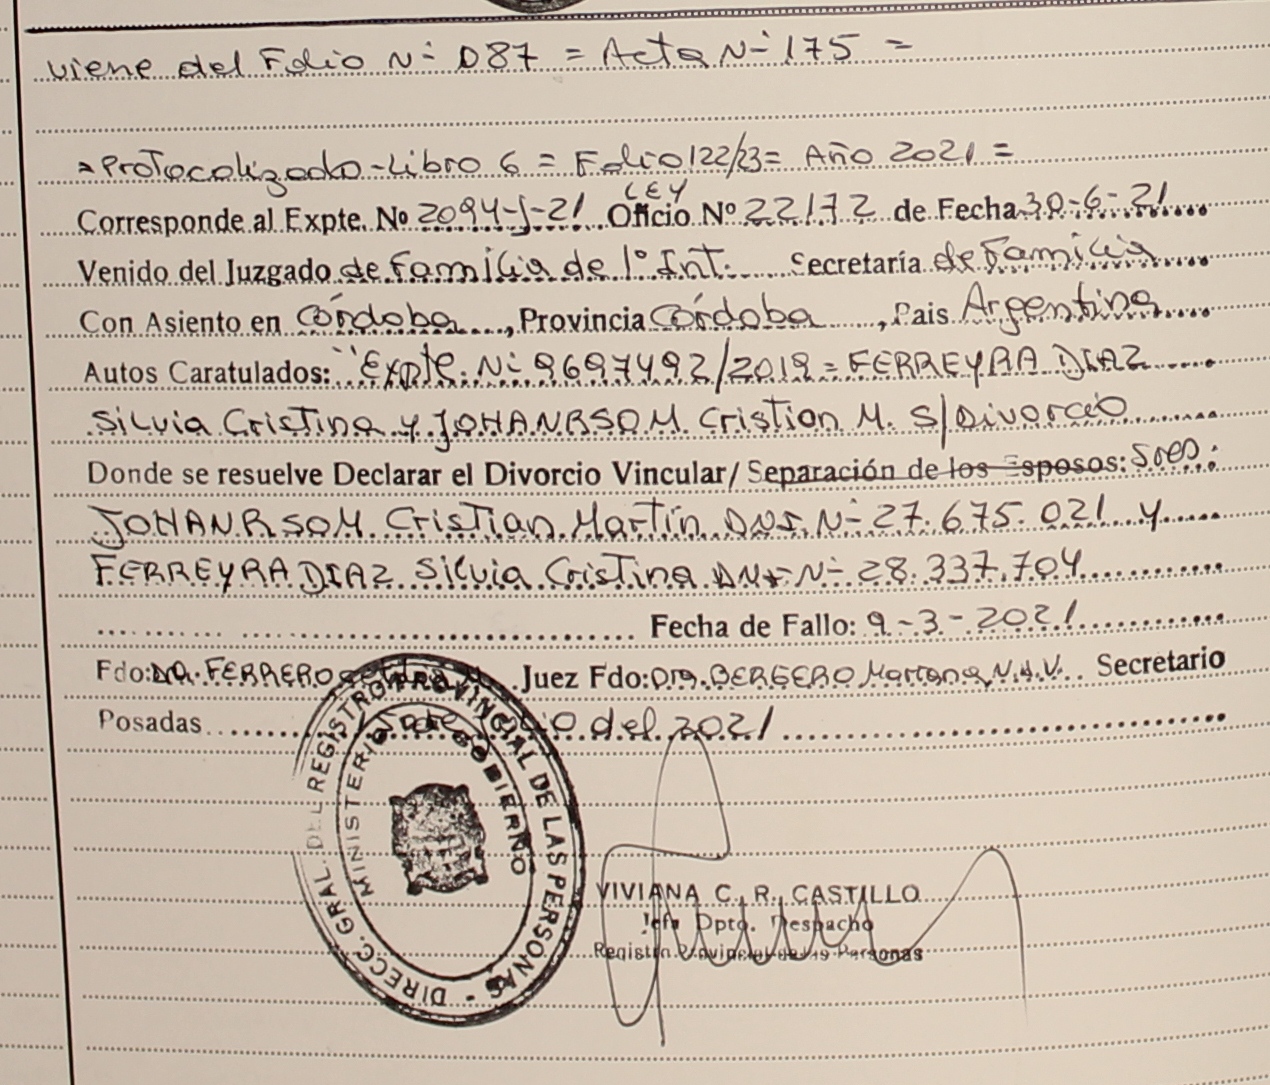 viene del Folio N° 087 = Acta N° 175 =
Protocolizado-Libro 6 = Folio 122/23 = Año 2021 =
LEY
Corresponde al Expte. Nº 2094-J-21 Oficio Nº 22172 de Fecha 30-6-21
Venido del Juzgado de Familia de 1º Int. Secretaría de Familia
Con Asiento en Córdoba, Provincia Córdoba, Pais Argentina
Autos Caratulados: "Expte. N° 9697492/2019 = FERREYRA DIAZ
Silvia Cristina y JOHANRSOM Cristian M. S/Divorcio
Donde se resuelve Declarar el Divorcio Vincular/ Separación de los Esposos: Sres:
JOHANRSOM Cristian Martín DNI. N° 27.675.021 y
FERREYRA DIAZ Silvia Cristina DNI N° 28.337.704
Fecha de Fallo: 9-3-2021
Fdo: DRA. FERRERO Juez Fdo: Dra. BERGERO Mariana N.A.V. Secretario
Posadas del 2021
DIRECC. GRAL. DEL REGISTRO PROVINCIAL DE LAS PERSONAS
MINISTERIO DE GOBIERNO
VIVIANA C. R. CASTILLO
Jefa Dpto. Despacho
Registro Provincial de las Personas